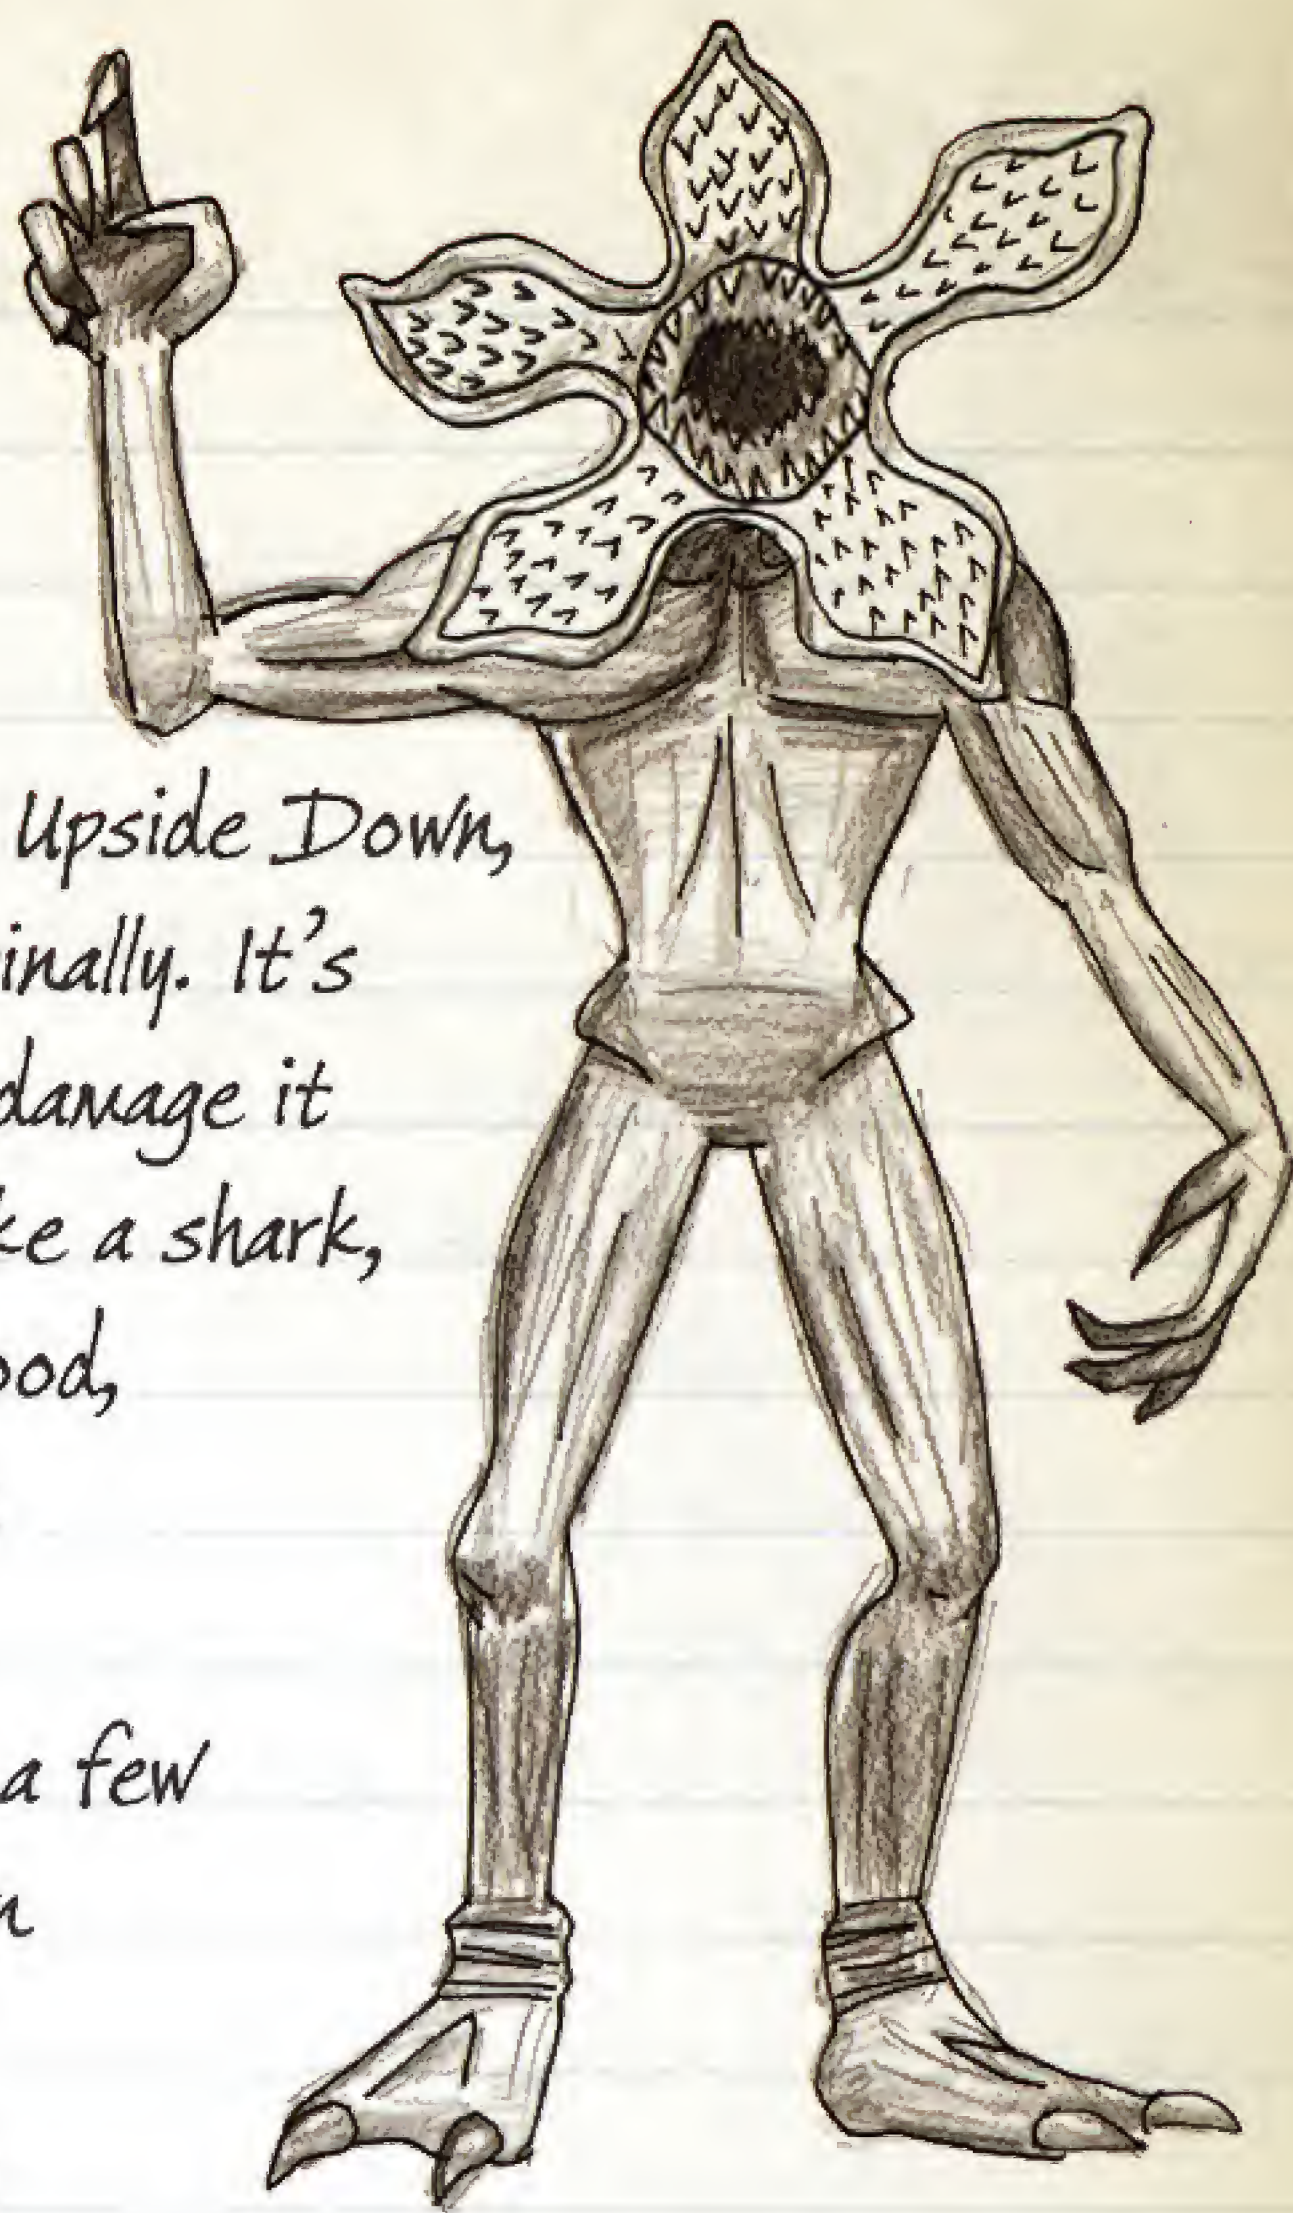 Upside Down,
inally. It's
damage it
ke a shark,
ood,
a few
n